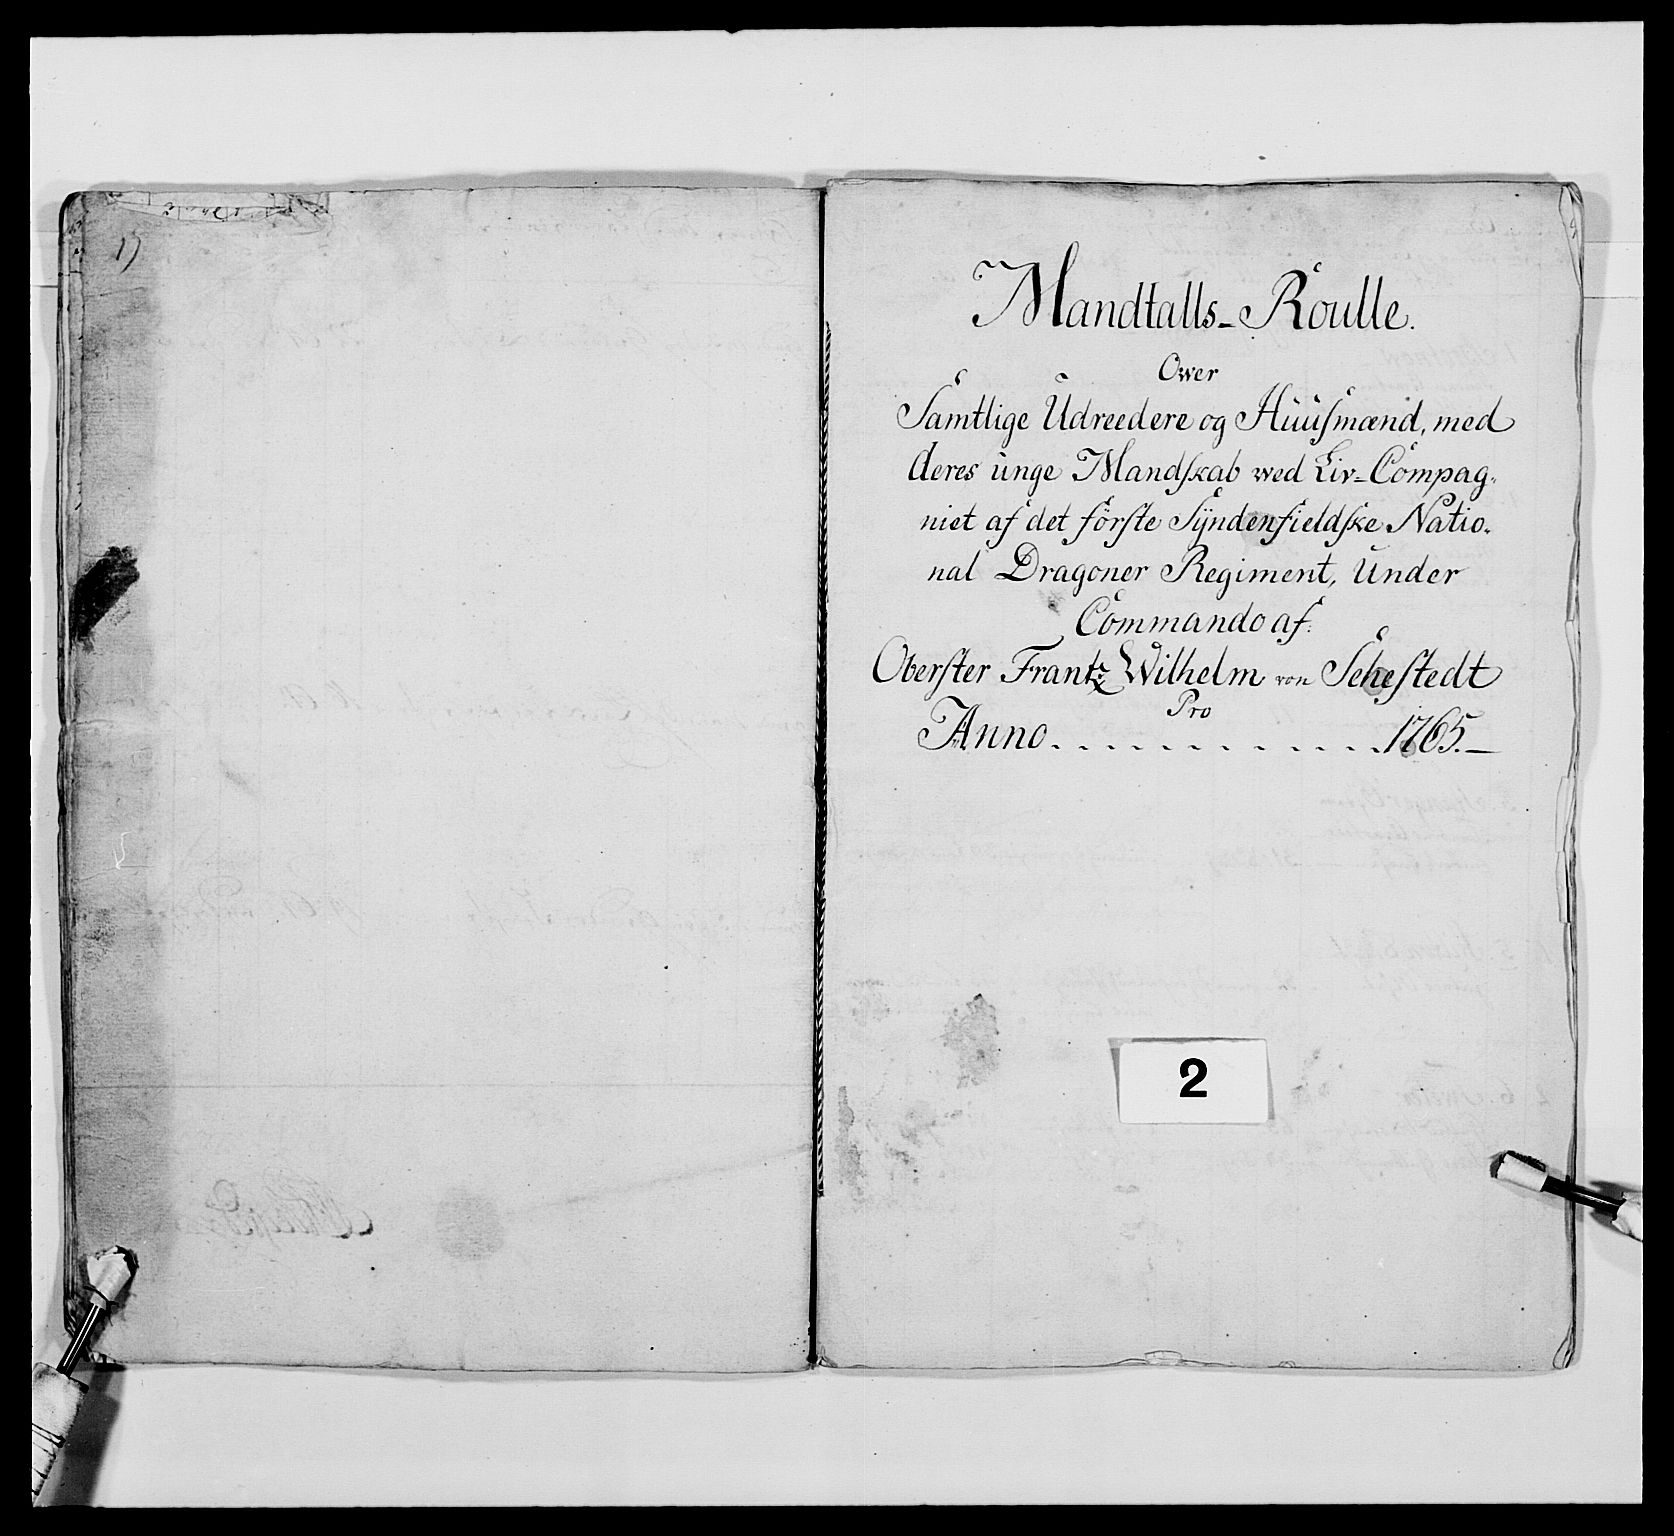 Mandtalls-Roulle.
Ower
Samtlige Udreedere og Huusmænd, med
deres unge Mandskab wed Liv-Compag-
niet af det förste Syndenfieldske Natio-
nal Dragoner Regiment, Under
Commando af:
Oberster Frantz Wilhelm von Sehestedt
Pro
Anno . . . . . . . . . . . . . 1765.
2